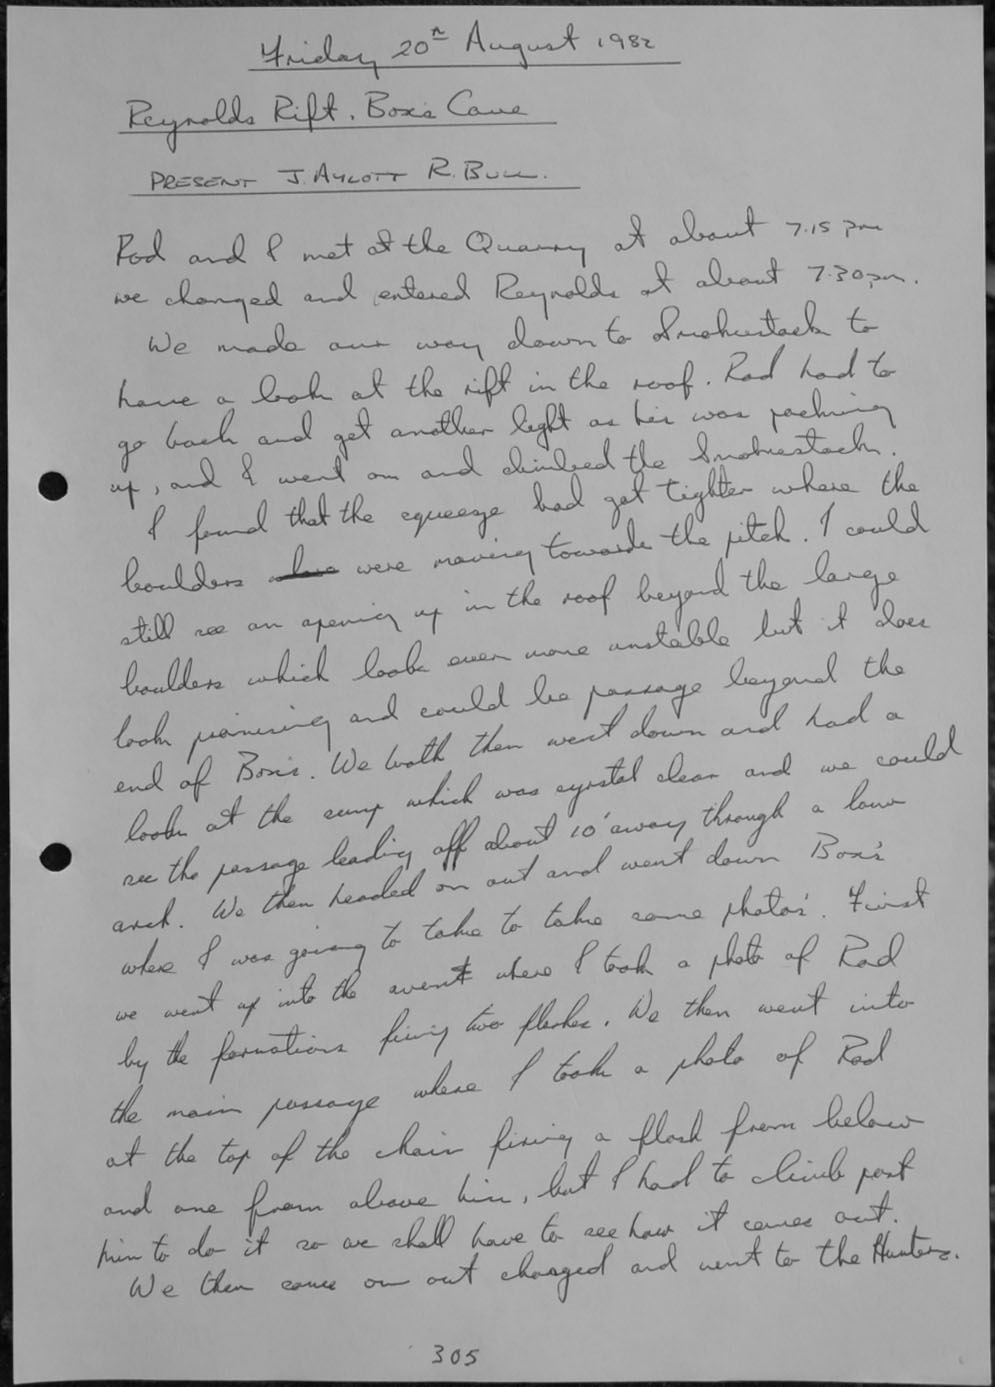 Friday 20th August 1982
Reynolds Rift. Box's Cave
PRESENT J. AYLOTT R. BULL.
Rod and I met at the Quarry at about 7.15 pm
we changed and entered Reynolds at about 7.30pm.
We made our way down to Smokestack to
have a look at the rift in the roof. Rod had to
go back and get another light as his was packing
up, and I went on and climbed the Smokestack.
I found that the squeeze had got tighter where the
boulders were moving towards the pitch. I could
still see an opening up in the roof beyond the large
boulders which look even more unstable but it does
look promising and could be passage beyond the
end of Box's. We both then went down and had a
look at the sump which was cyrstal clear and we could
see the passage leading off about 10' away through a low
arch. We then headed on out and went down Box's
where I was going to take to take some photos'. First
we went up into the avent where I took a photo of Rod
by the formations firing two flashes. We then went into
the main passage where I took a photo of Rod
at the top of the chain firing a flash from below
and one from above him, but I had to climb past
him to do it so we shall have to see how it comes out.
We then came on out changed and went to the Hunters.
305